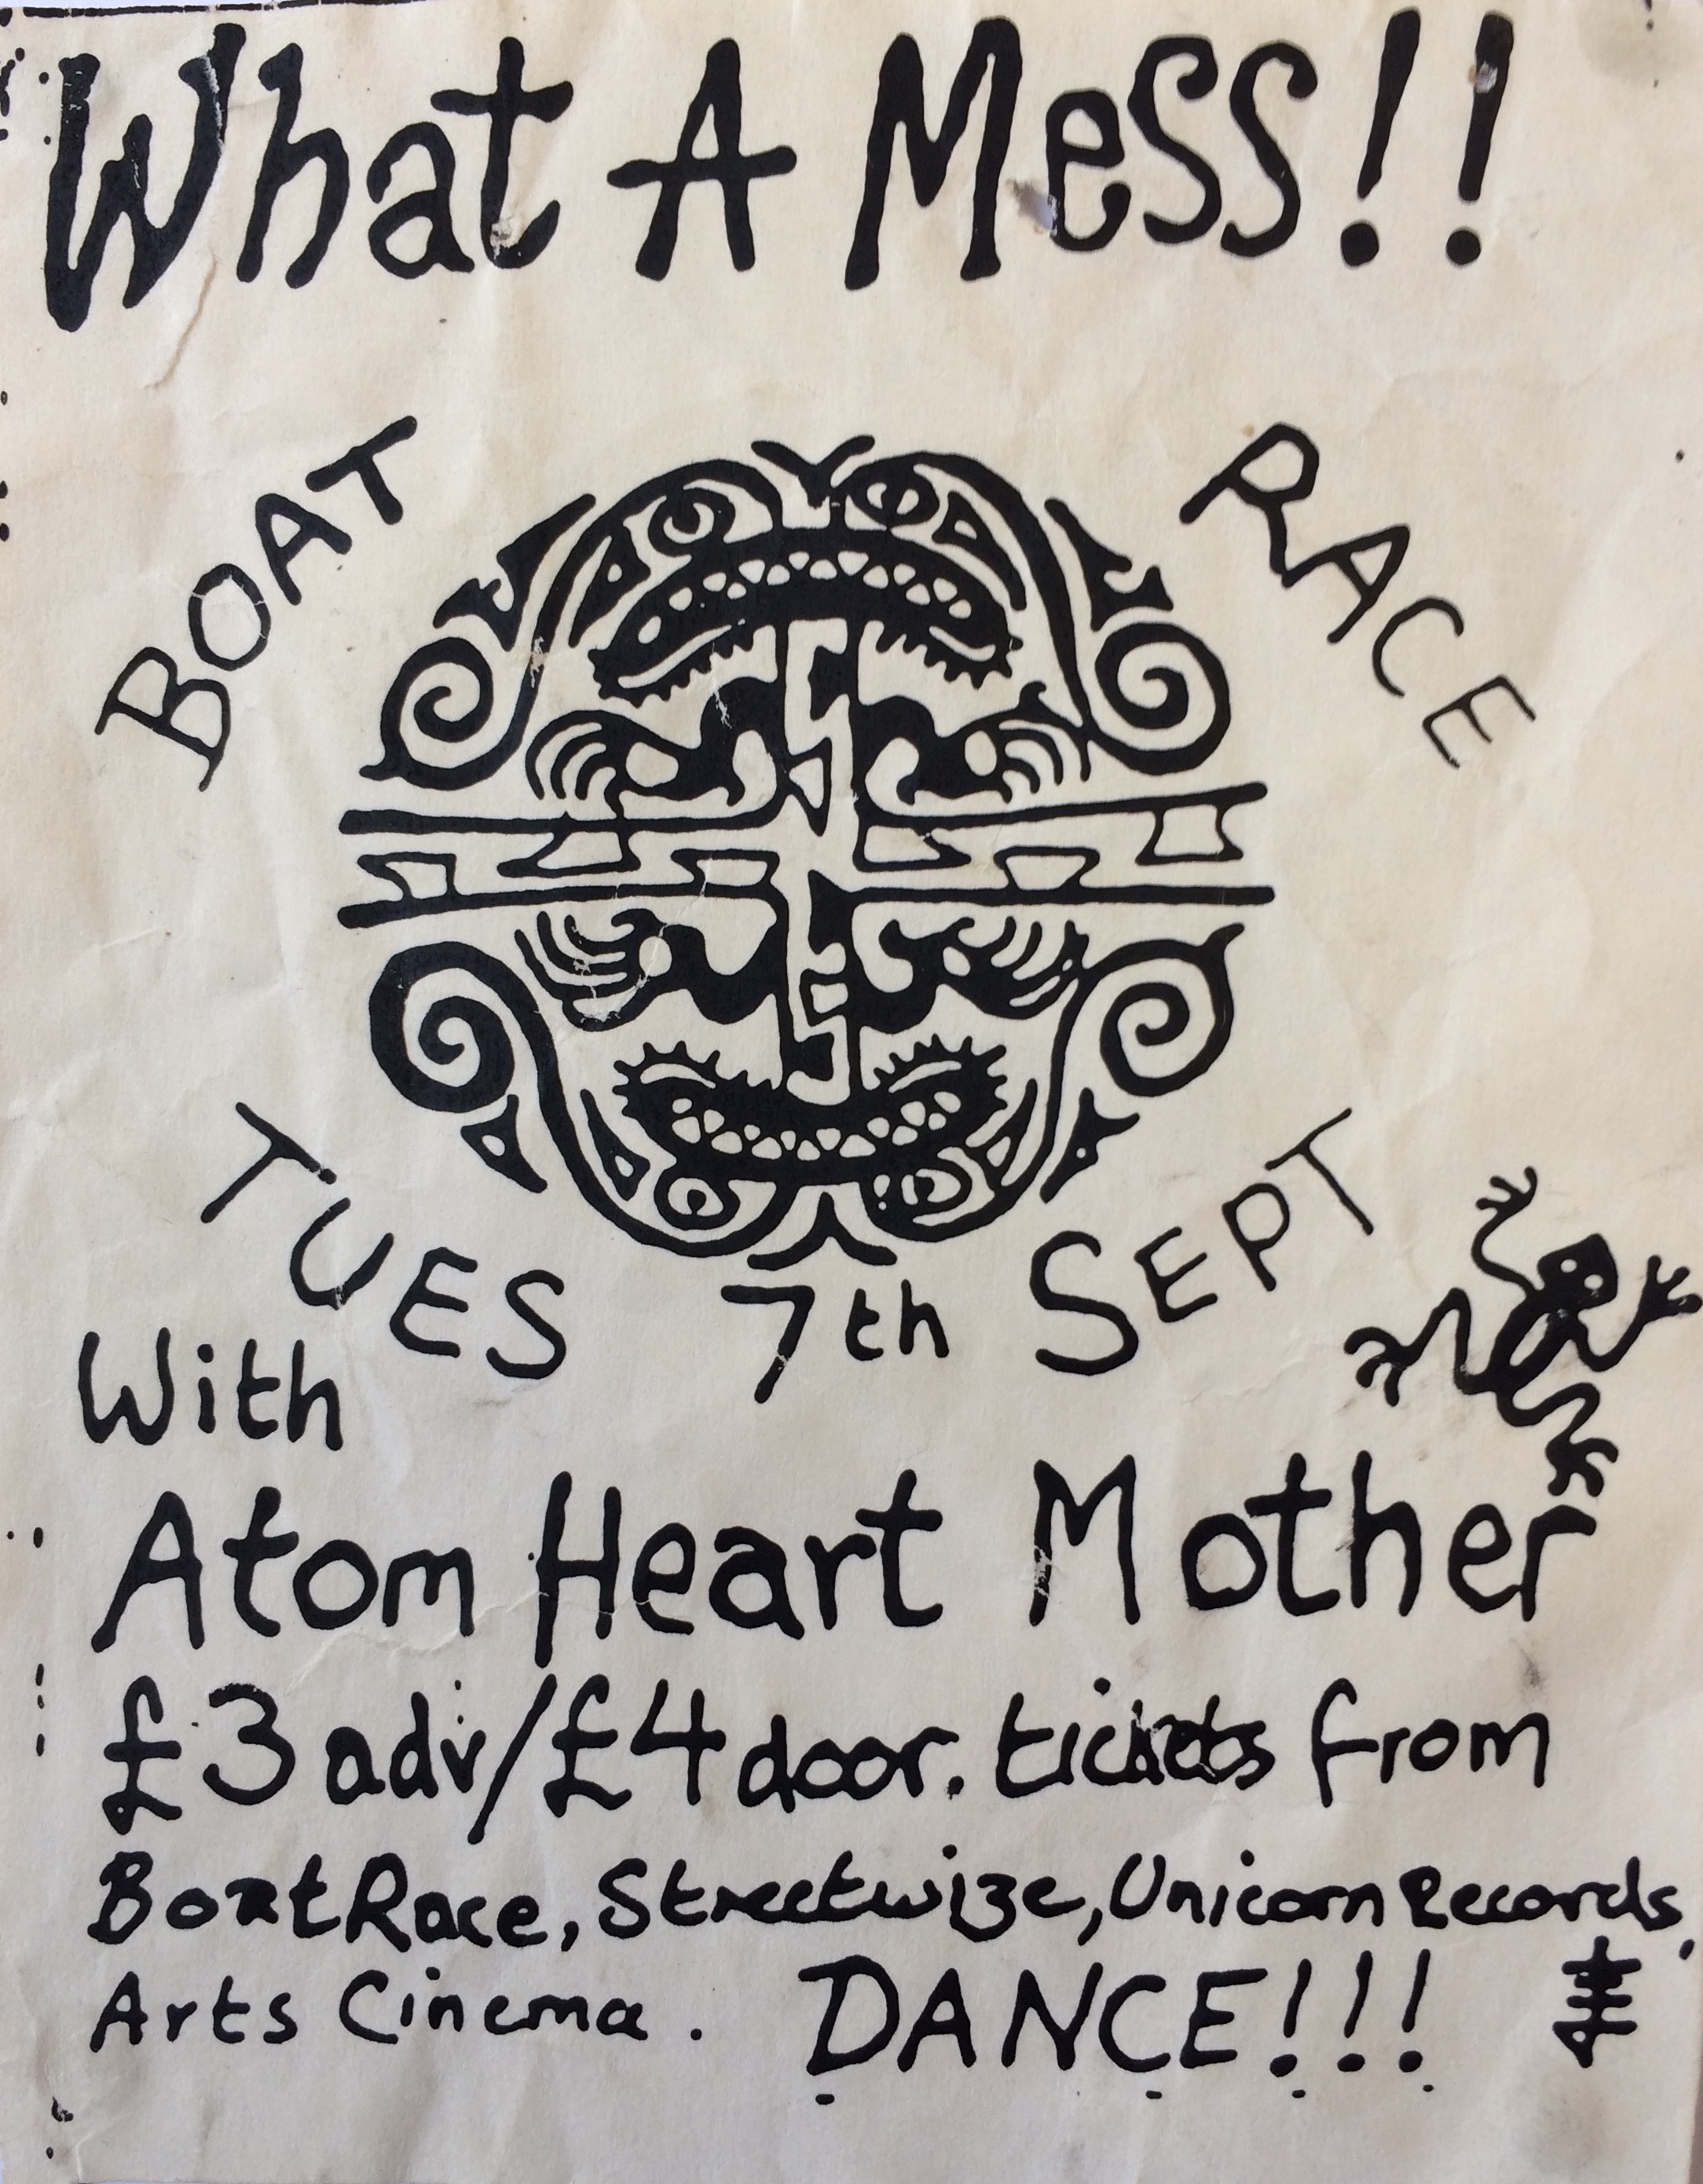 What A Mess!!
BOAT RACE
TUES 7th SEPT
With
Atom Heart Mother
£3 adv/£4 door. tickets from
Boat Race, Streetwize, Unicorn Records,
Arts Cinema. DANCE!!!